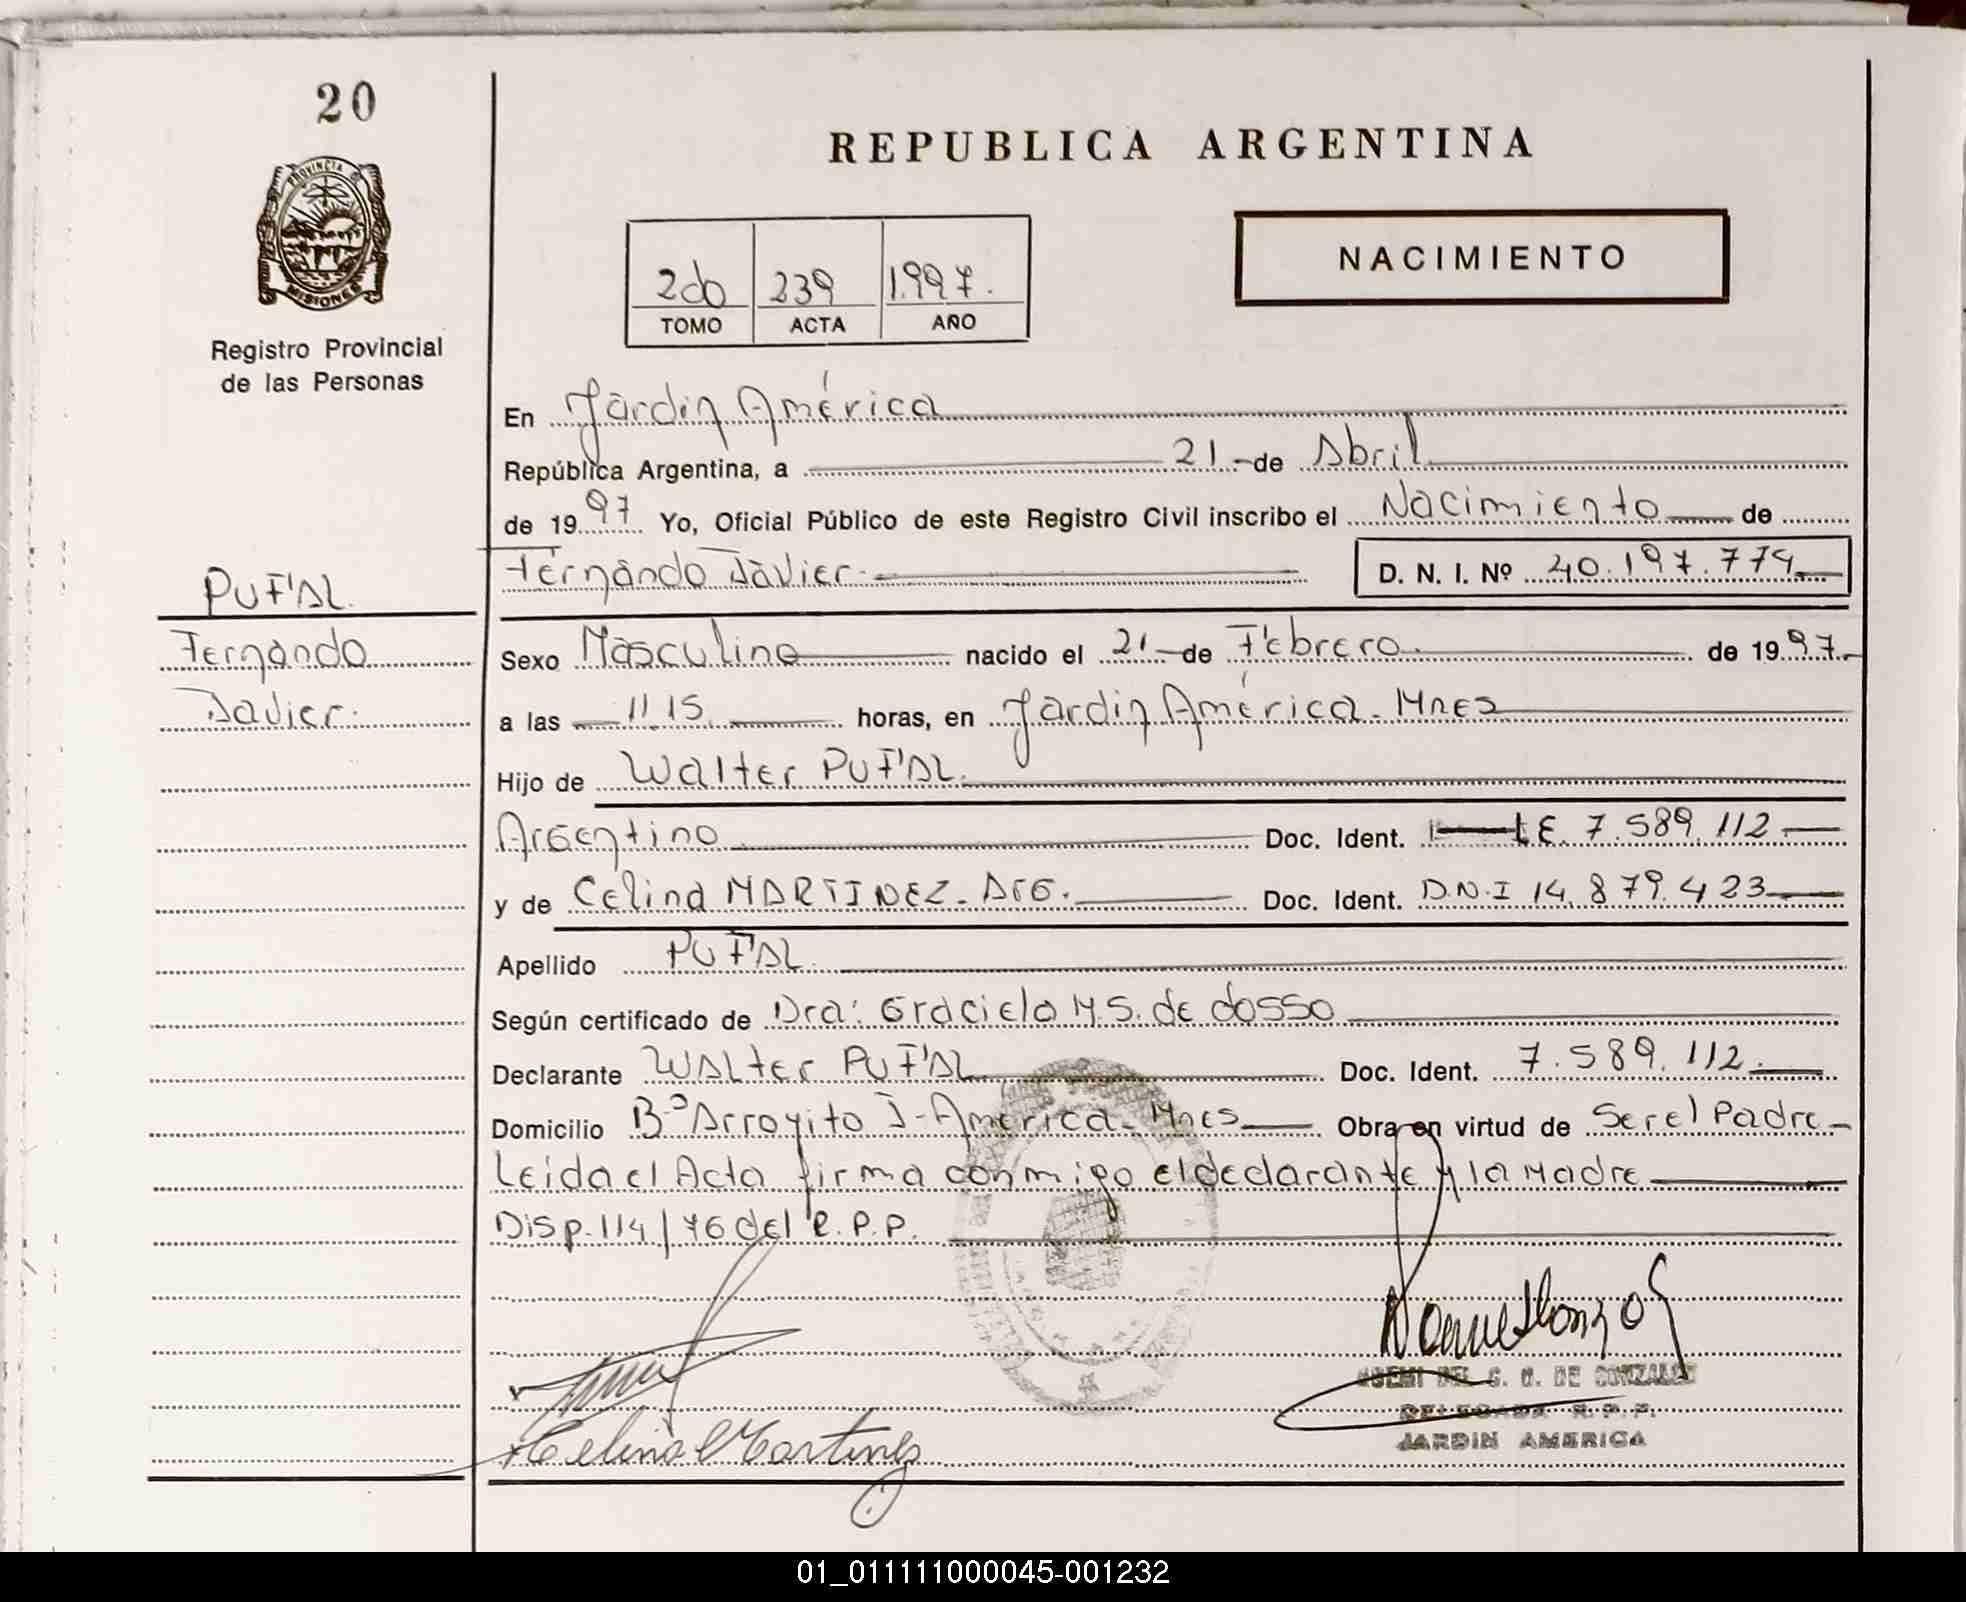 20
REPUBLICA ARGENTINA
PROVINCIA DE
MISIONES
Registro Provincial
de las Personas
2do 239 1.997.
TOMO ACTA AÑO
NACIMIENTO
En Jardin América
República Argentina, a 21.- de Abril
de 19 97 Yo, Oficial Público de este Registro Civil inscribo el Nacimiento de
Fernando Javier.- D. N. I. Nº 40.197.774
PUFAL
Fernando
Javier.
Sexo Masculino nacido el 21 de Febrero. de 19 97.-
a las 11 15 horas, en Jardin América - Mnes
Hijo de Walter PUFAL.
Argentino Doc. Ident. L.E. 7.589.112.-
y de Celina MARTINEZ - Arg. Doc. Ident. D.N.I 14.879.423
Apellido PUFAL
Según certificado de Dra: Graciela M.S. de dosso
Declarante WALter PUFAL Doc. Ident. 7.589.112.
Domicilio Bº Arroyito J-América - Mnes Obra en virtud de Ser el Padre-
Leída el Acta firma conmigo el declarante y la Madre
Disp. 114/76 del R.P.P.
Celina Martinez
G. DE GONZALEZ
DELEGADA R.P.P.
JARDIN AMERICA
01_011111000045-001232